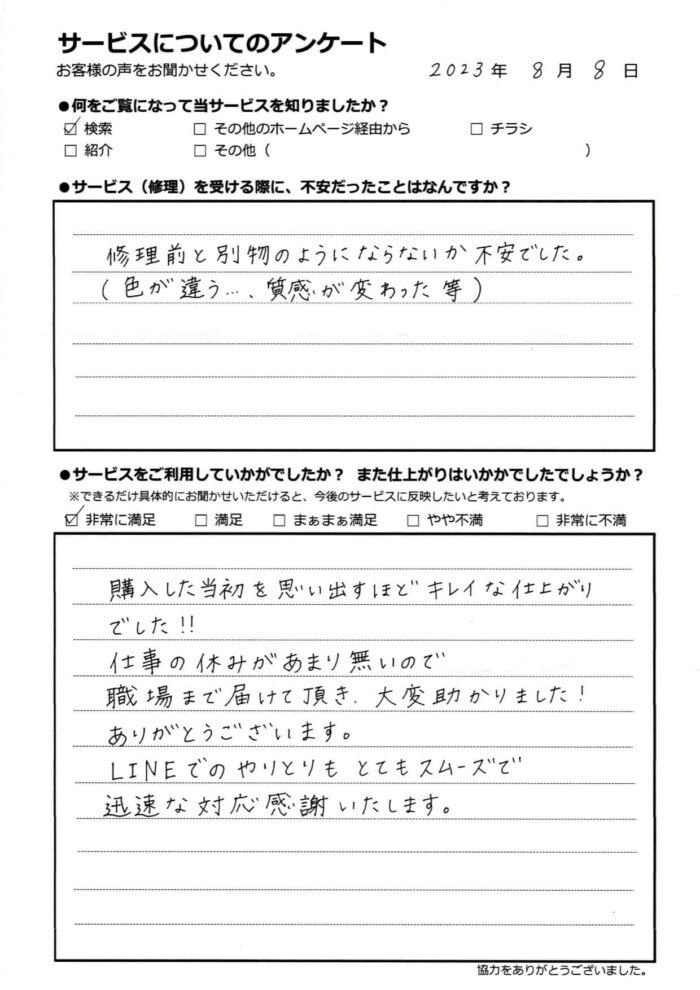 サービスについてのアンケート
お客様の声をお聞かせください。
2023年 8月 8日
●何をご覧になって当サービスを知りましたか？
☑ 検索 □ その他のホームページ経由から □ チラシ
□ 紹介 □ その他（ ）
●サービス（修理）を受ける際に、不安だったことはなんですか？
修理前と別物のようにならないか不安でした。
(色が違う…、質感が変わった等)
●サービスをご利用していかがでしたか？ また仕上がりはいかかでしたでしょうか？
※できるだけ具体的にお聞かせいただけると、今後のサービスに反映したいと考えております。
☑ 非常に満足 □ 満足 □ まぁまぁ満足 □ やや不満 □ 非常に不満
購入した当初を思い出すほどキレイな仕上がり
でした!!
仕事の休みがあまり無いので
職場まで届けて頂き、大変助かりました!
ありがとうございます。
LINEでのやりとりもとてもスムーズで
迅速な対応感謝いたします。
協力をありがとうございました。